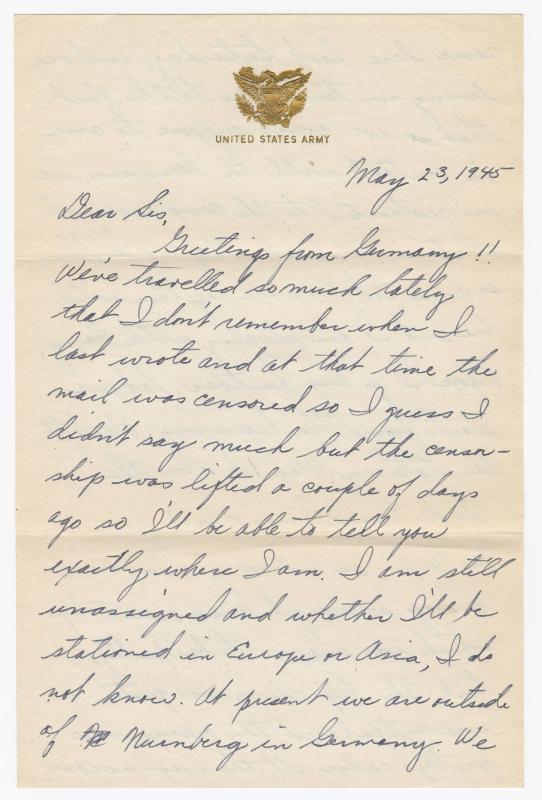 UNITED STATES ARMY
May 23, 1945
Dear Sis,
Greetings from Germany!!
We've travelled so much lately
that I don't remember when I
last wrote and at that time the
mail was censored so I guess I
didn't say much but the censor-
ship was lifted a couple of days
ago so I'll be able to tell you
exactly where I am. I am still
unassigned and whether I'll be
stationed in Europe or Asia, I do
not know. At present we are outside
of Nurnberg in Germany. We